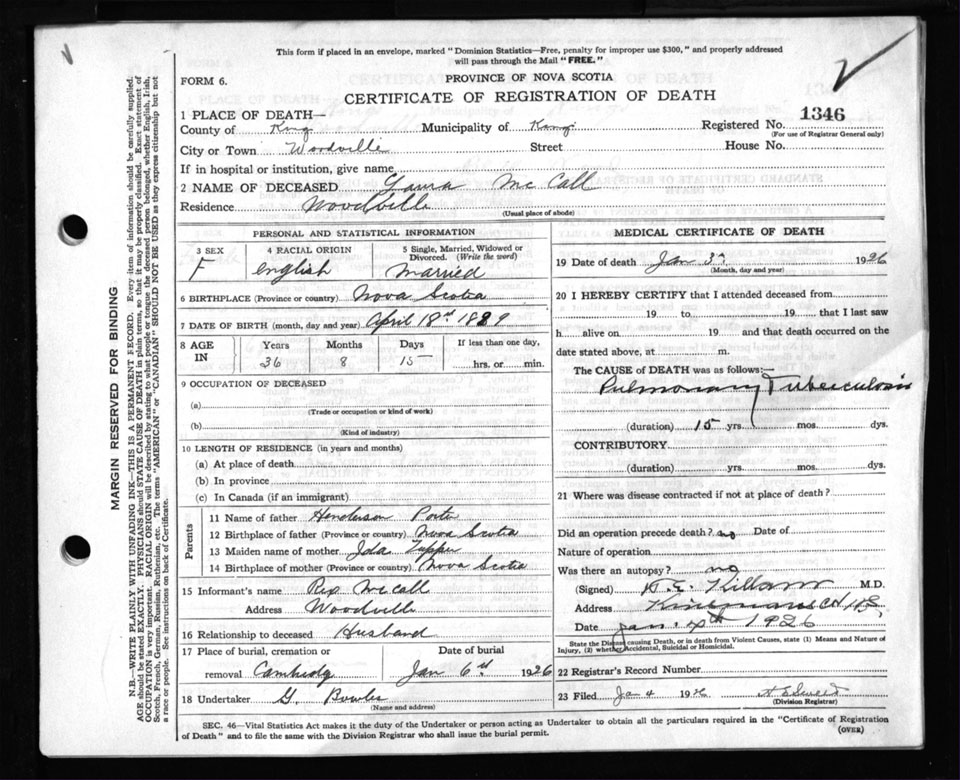 This form if placed in an envelope, marked "Dominion Statistics—Free, penalty for improper use $300," and properly addressed
will pass through the Mail "FREE."
FORM 6.
PROVINCE OF NOVA SCOTIA
CERTIFICATE OF REGISTRATION OF DEATH
1 PLACE OF DEATH—
County of Kings Municipality of Kings Registered No. 1346
(For use of Registrar General only)
City or Town Woodville Street House No.
If in hospital or institution, give name
2 NAME OF DECEASED Laura McCall
Residence Woodville
(Usual place of abode)
PERSONAL AND STATISTICAL INFORMATION
3 SEX
F
4 RACIAL ORIGIN
English
5 Single, Married, Widowed or
Divorced. (Write the word)
Married
6 BIRTHPLACE (Province or country) Nova Scotia
7 DATE OF BIRTH (month, day and year) April 18th 1889
8 AGE
IN
Years Months Days If less than one day,
36 8 15 hrs. or min.
9 OCCUPATION OF DECEASED
(a)
(Trade or occupation or kind of work)
(b)
(Kind of industry)
10 LENGTH OF RESIDENCE (in years and months)
(a) At place of death
(b) In province
(c) In Canada (if an immigrant)
Parents
11 Name of father Henderson Porter
12 Birthplace of father (Province or country) Nova Scotia
13 Maiden name of mother Ida Tupper
14 Birthplace of mother (Province or country) Nova Scotia
15 Informant's name McCall
Address Woodville
16 Relationship to deceased Husband
17 Place of burial, cremation or Date of burial
removal Cambridg Jan 6th 1926
18 Undertaker G. Bowles
(Name and address)
MEDICAL CERTIFICATE OF DEATH
19 Date of death Jan 3rd 1926
(Month, day and year)
20 I HEREBY CERTIFY that I attended deceased from
19 to 19 that I last saw
h alive on 19 and that death occurred on the
date stated above, at m.
The CAUSE of DEATH was as follows:—
Pulmonary Tuberculosis
(duration) 15 yrs. mos. dys.
CONTRIBUTORY
(duration) yrs. mos. dys.
21 Where was disease contracted if not at place of death?
Did an operation precede death? no Date of
Nature of operation
Was there an autopsy? no
(Signed) Killam M.D.
Address
Date Jan. 4th 1926
State the Disease causing Death, or in death from Violent Causes, state (1) Means and Nature of
Injury, (2) whether Accidental, Suicidal or Homicidal.
22 Registrar's Record Number
23 Filed Jan 4 1926
(Division Registrar)
SEC. 46—Vital Statistics Act makes it the duty of the Undertaker or person acting as Undertaker to obtain all the particulars required in the "Certificate of Registration
of Death" and to file the same with the Division Registrar who shall issue the burial permit.
(OVER)
MARGIN RESERVED FOR BINDING
N.B.—WRITE PLAINLY WITH UNFADING INK—THIS IS A PERMANENT RECORD. Every item of information should be carefully supplied.
AGE should be stated EXACTLY. PHYSICIANS should STATE CAUSE OF DEATH in plain terms, so that it may be properly classified. Exact statement of
OCCUPATION is very important. RACIAL ORIGIN will be described by stating to what people or tongue the deceased person belonged, whether English, Irish,
Scotch, French, German, Russian, Ruthenian, etc. The terms "AMERICAN" or "CANADIAN" SHOULD NOT BE USED as they express citizenship but not
a race or people. See instructions on back of Certificate.